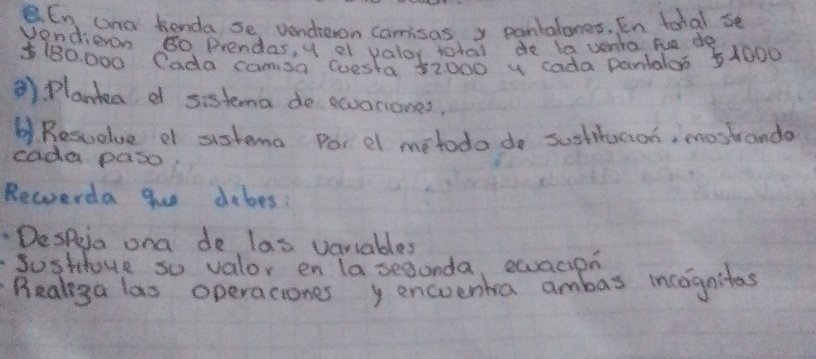 8. En una tienda, se vendieron camisas y pantalones. En total se
vendieron 80 Prendas, y el valor total de la venta fue de
$180.000 Cada camisa cuesta $2000 y cada pantalon $1000
a) Plantea el sistema de ecuaciones.
b) Resuelve el sistema Por el método de sustitución, mostrando
cada paso.
Recuerda que debes:
· Despeja una de las variables
· Sustituye su valor en la segunda ecuación
· Realiza las operaciones y encuentra ambas incógnitas